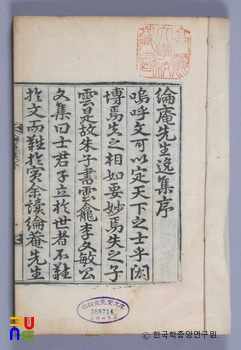 倫庵先生逸集序
嗚呼文可以定天下之士乎閎
博焉失之相如要妙焉失之子
雲是故朱子書雲龕李文敏公
文集曰士君子立於世者不難
於文而難於實余讀倫菴先生
380714
한국학중앙연구원